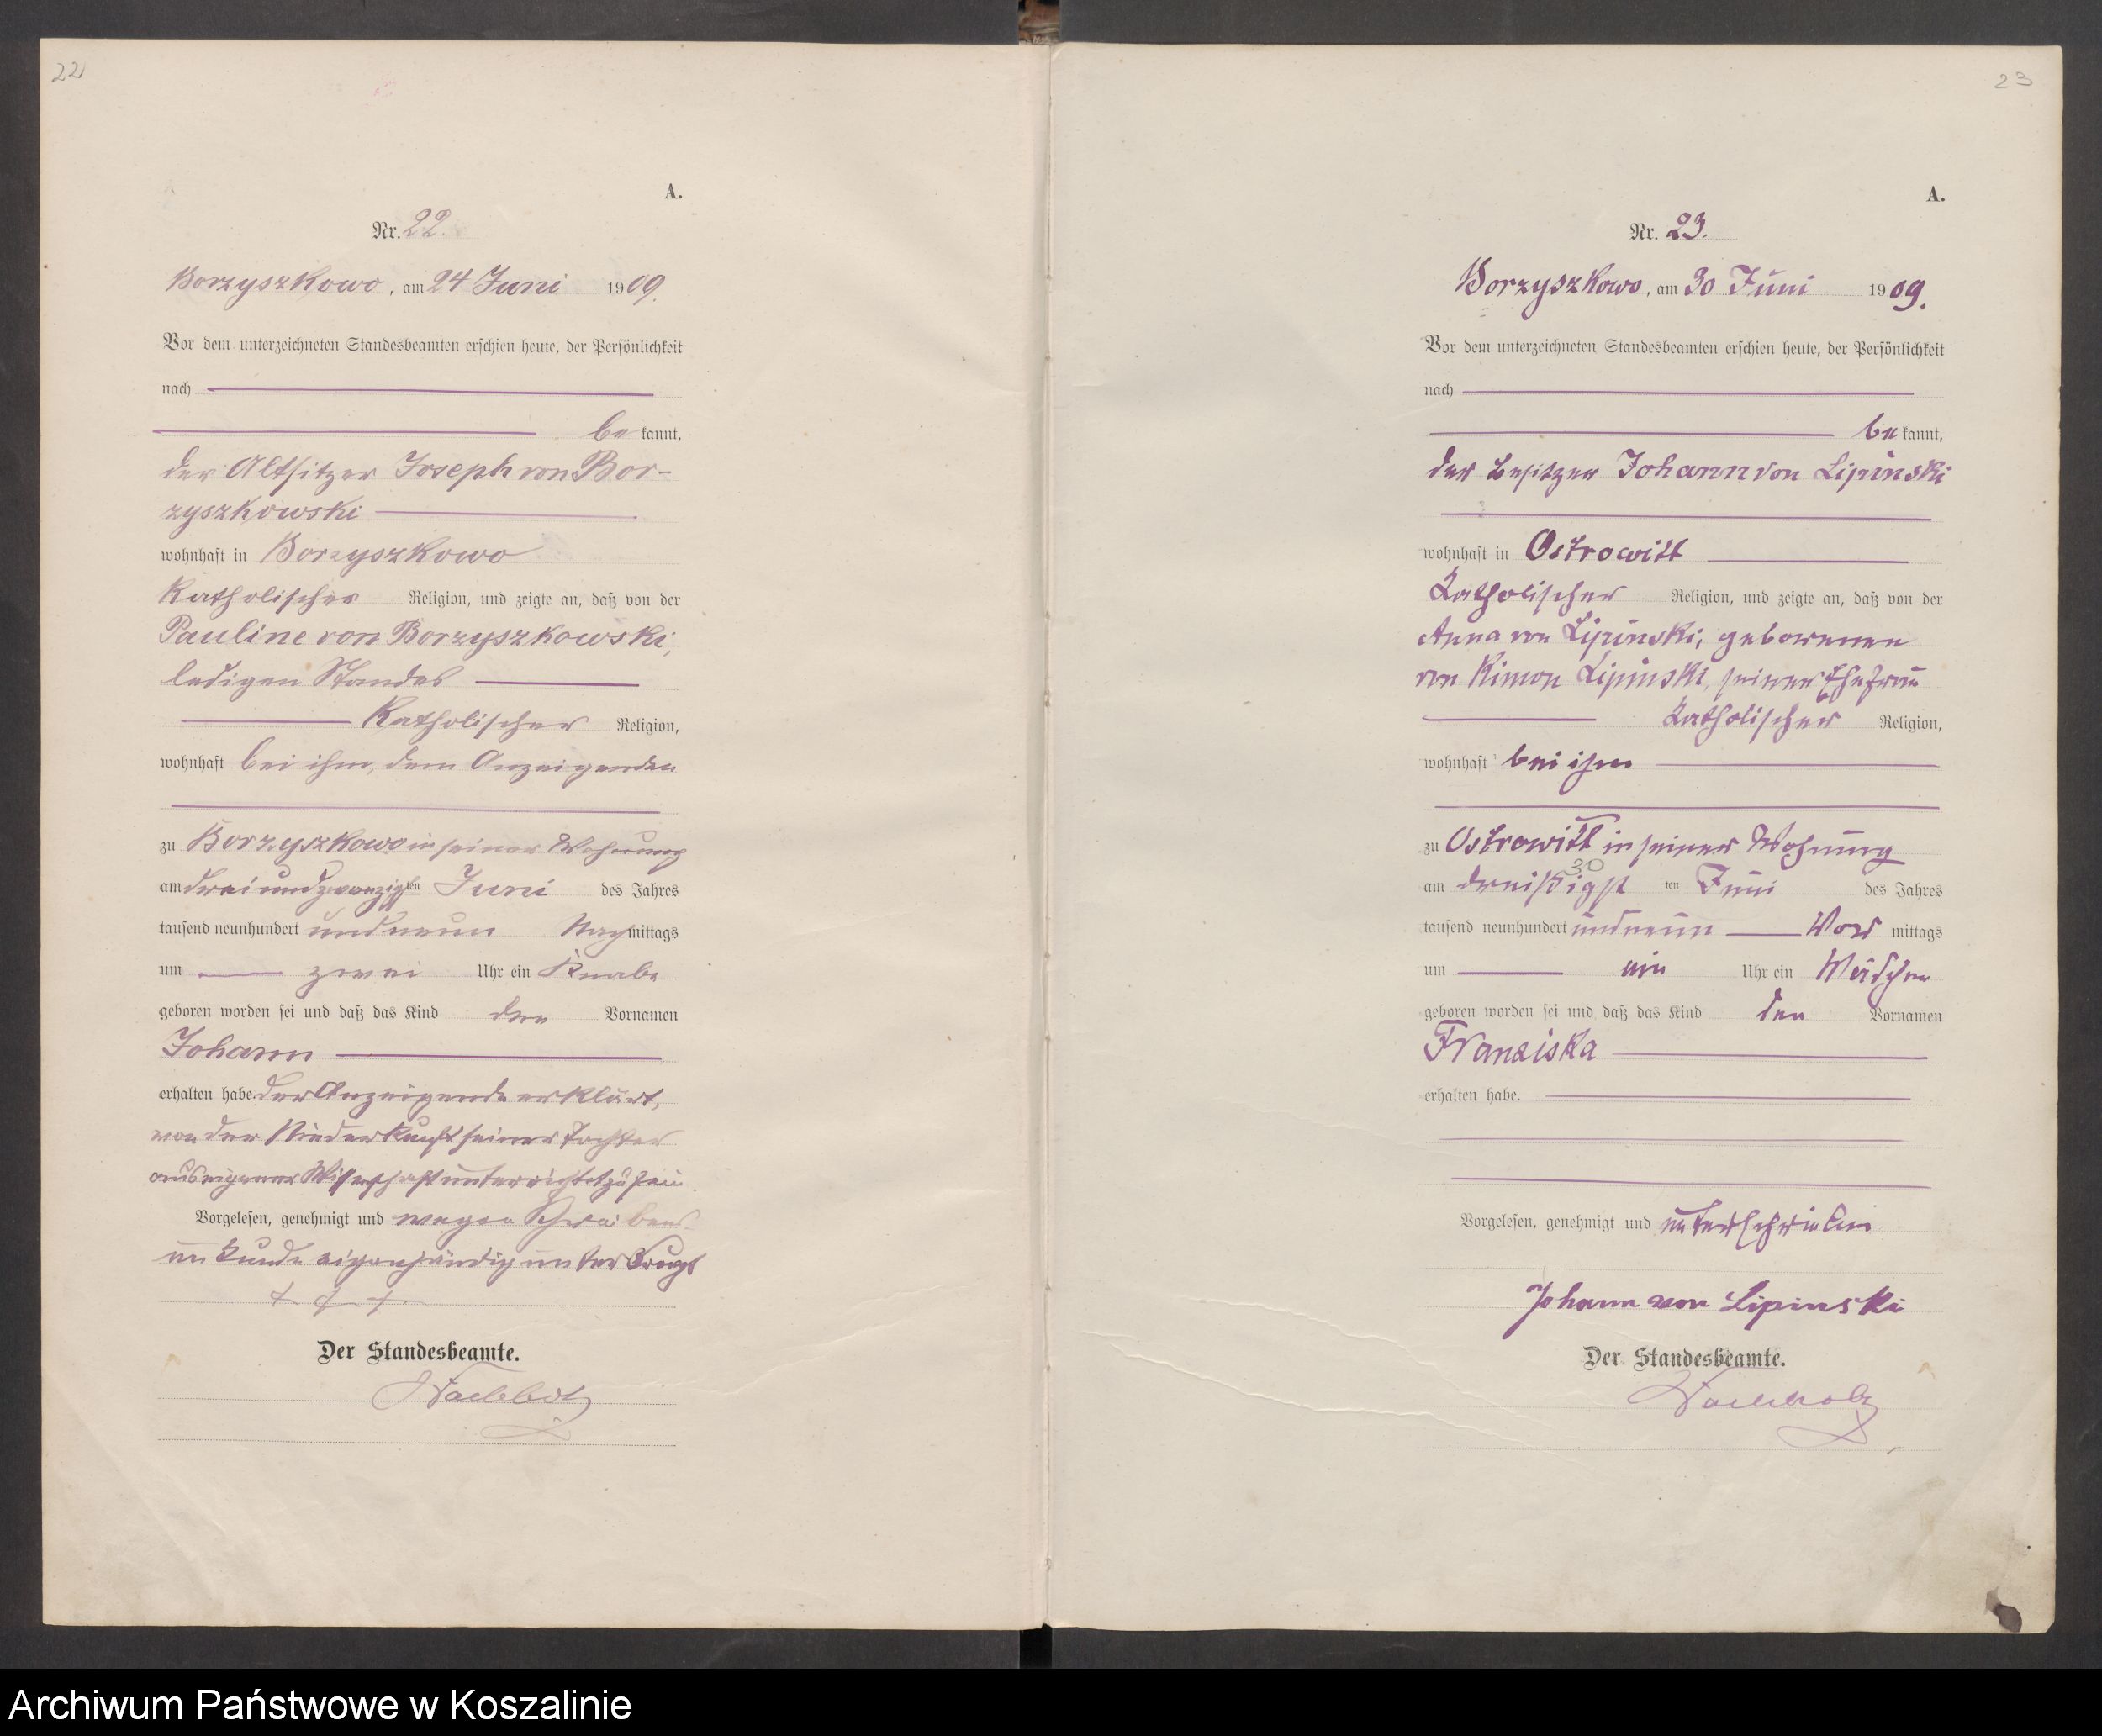 22
A.
Nr. 22.
Borzyszkowo, am 24 Juni 1909.
Vor dem unterzeichneten Standesbeamten erschien heute, der Persönlichkeit
nach
be kannt,
der Altsitzer Joseph von Bor-
zyszkowski
wohnhaft in Borzyszkowo
katholischer Religion, und zeigte an, daß von der
Pauline von Borzyszkowski,
ledigen Standes
katholischer Religion,
wohnhaft bei ihm, dem Anzeigenden
zu Borzyszkowo in seiner Wohnung
am drei und zwanzigsten Juni des Jahres
tausend neunhundert und neun Nachmittags
um zwei Uhr ein Knabe
geboren worden sei und daß das Kind den Vornamen
Johann
erhalten habe. Der Anzeigende erklärt,
von der Niederkunft seiner Tochter
aus eigener Wissenschaft unterrichtet zu sein.
Vorgelesen, genehmigt und wegen Schreibens-
unkunde eigenhändig unterkreuzt
+ + +
Der Standesbeamte.
23
A.
Nr. 23.
Borzyszkowo, am 30 Juni 1909.
Vor dem unterzeichneten Standesbeamten erschien heute, der Persönlichkeit
nach
be kannt,
der Besitzer Johann von Lipinski
wohnhaft in Ostrowitt
katholischer Religion, und zeigte an, daß von der
Anna von Lipinski, geborenen
von Lipinski, seiner Ehefrau
katholischer Religion,
wohnhaft bei ihm
zu Ostrowitt in seiner Wohnung
30
am dreißigst ten Juni des Jahres
tausend neunhundert und neun Vor mittags
um ein Uhr ein Mädchen
geboren worden sei und daß das Kind den Vornamen
Franziska
erhalten habe.
Vorgelesen, genehmigt und unterschrieben
Johann von Lipinski
Der Standesbeamte.
Archiwum Państwowe w Koszalinie